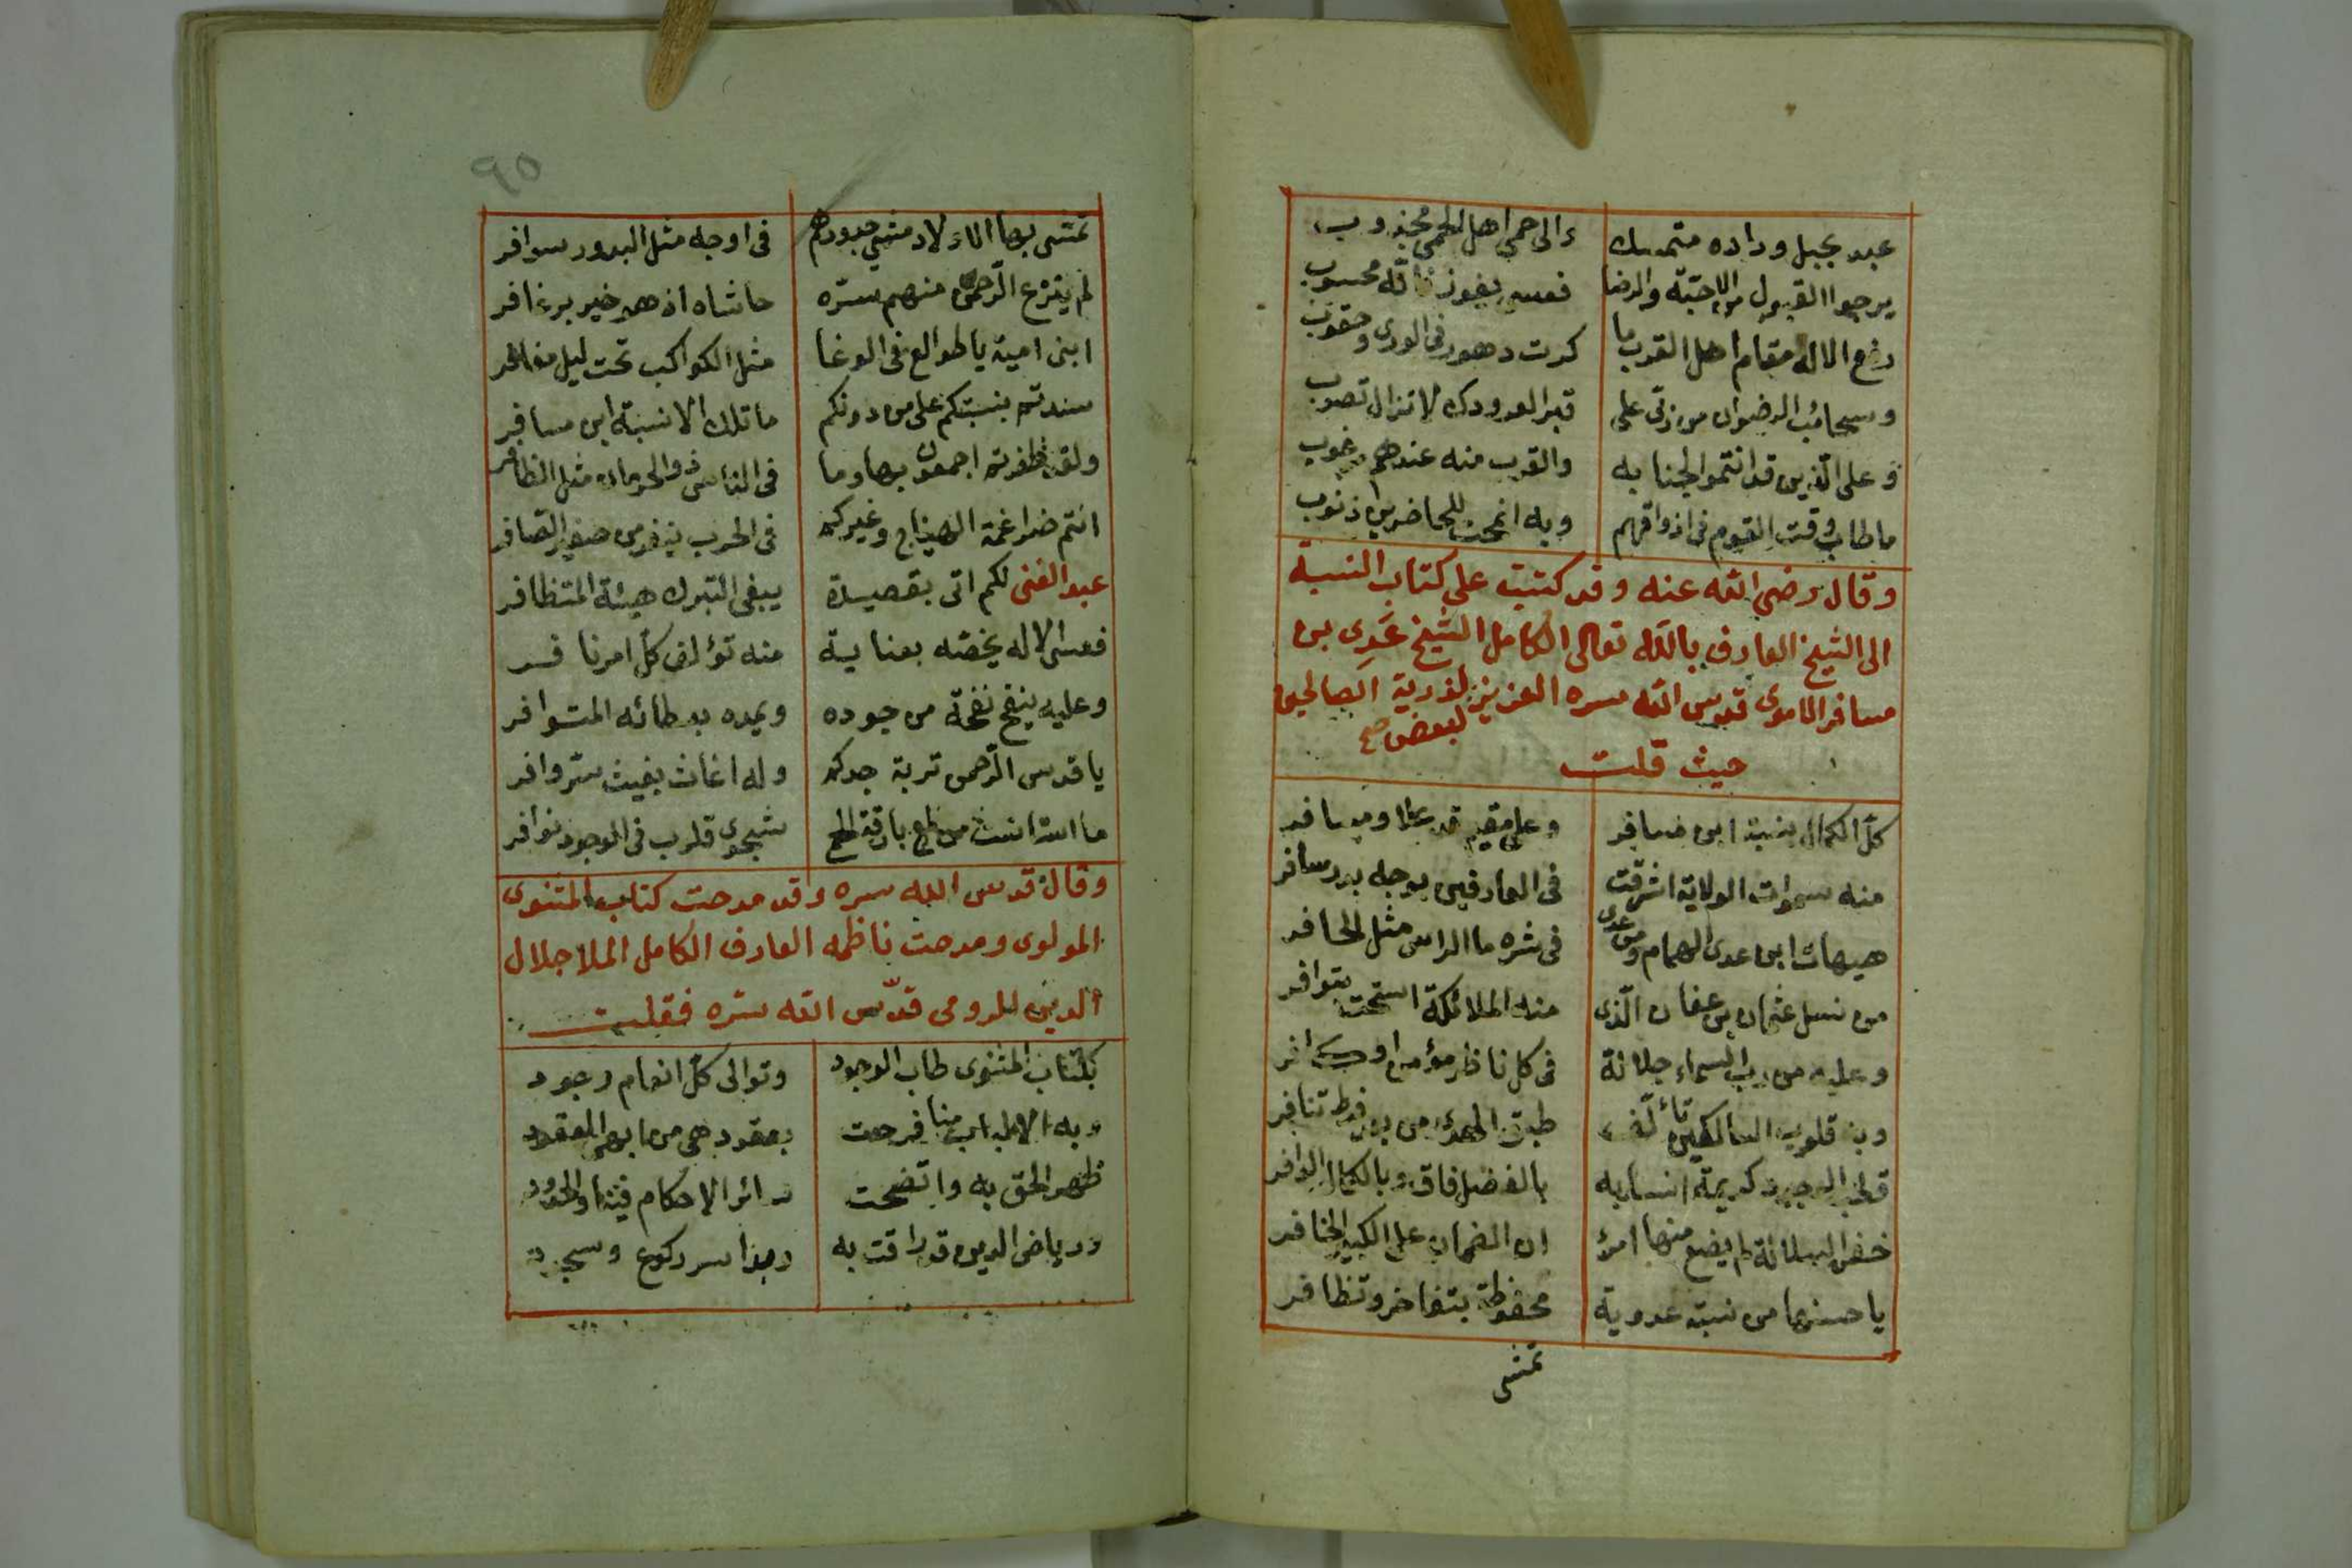 عبد بحبل وداده متمسك    والى حمى اهل الحمى مجذوب
يرجوا القبول من الاحبة والرضا    فعسى يفوز فانه محسوب
رفع الاله مقام اهل القرب ما    كرت دهور فى الورى وحقوب
وسحائب الرضوان من ربى على    قبر العدو دك لا تزال تصوب
وعلى الذين قد انتموا لجنابه    والقرب منه عندهم مرغوب
ما طاب وقت القوم فى اذواقهم    وبه انمحت للحاضرين ذنوب
وقال رضي الله عنه وقد كتبت على كتاب النسبة
الى الشيخ العارف بالله تعالى الكامل الشيخ عدى بن
مسافر الاموى قدس الله سره العزيز لذرية الصالحين
لبعض صح
حيث قلت
كل الكمال بنسبة ابن مسافر    وعلى مقيم قد علا ومسافر
منه سموات الولاية اشرقت    فى العارفين بوجه بدر سافر
هيهات ابن عدى الهمام ومن عدى    فى شره ما الراس مثل الحافر
من نسل عثمان بن عفان الذى    منه الملائكة استحت بتوافر
وعليه من رب السماء جلالة    فى كل ناظر مؤمن او كافر
وبه قلوب السالكين تألفت    طبق الهدى من بعد فرط تنافر
قطب الوجود كريمة انسابه    بالفضل فاق وبالكمال الوافر
خفر الرسالة لم يضع منها امرؤ    ان الضمان على الكبير الخافر
يا حسنها من نسبة عدوية    محفوظة بتفاخر وتظافر
تمشى
٩٥
تمشى بها الاولاد مشي جدودهم    فى اوجه مثل البدور سوافر
لم ينزع الرحمن منهم سره    حاشاه اذ هم خير برغافر
ابنى امية يا طوالع فى الوغا    مثل الكواكب تحت ليل مغافر
سدتم بنسبتكم على من دونكم    ما تلك الا نسبة ابن مسافر
ولقد ظفرتم اجمعون بها وما    فى الناس ذو الحرمان مثل الظافر
انتم ضراغمة الهياج وغيركم    فى الحرب ينفر من صفير الصافر
عبد الغنى لكم اتى بقصيدة    يبغى التبرك هيئة المتظافر
فعسى الاله يخصه بعناية    منه تؤلف كل امر نافر
وعليه ينفح نفحة من جوده    ويمده بعطائه المتوافر
يا قدس الرحمن تربة جدكم    وله اغاث بغيث سر وافر
ما استأنست من لمع بارقة الحمى    شجوى قلوب فى الوجود نوافر
وقال قدس الله سره وقد مدحت كتاب المثنوى
المولوى ومدحت ناظمه العارف الكامل الملا جلال
الدين الرومى قدس الله سره فقلت
بكتاب المثنوى طاب الوجود    وتوالى كل انعام وجود
وبه الالباب منا فرحت    بعقود هى من ابهى العقود
ظهر الحق به واتضحت    سائر الاحكام فينا والحدود
ورياض الدين قد راقت به    وبدا سر ركوع وسجود